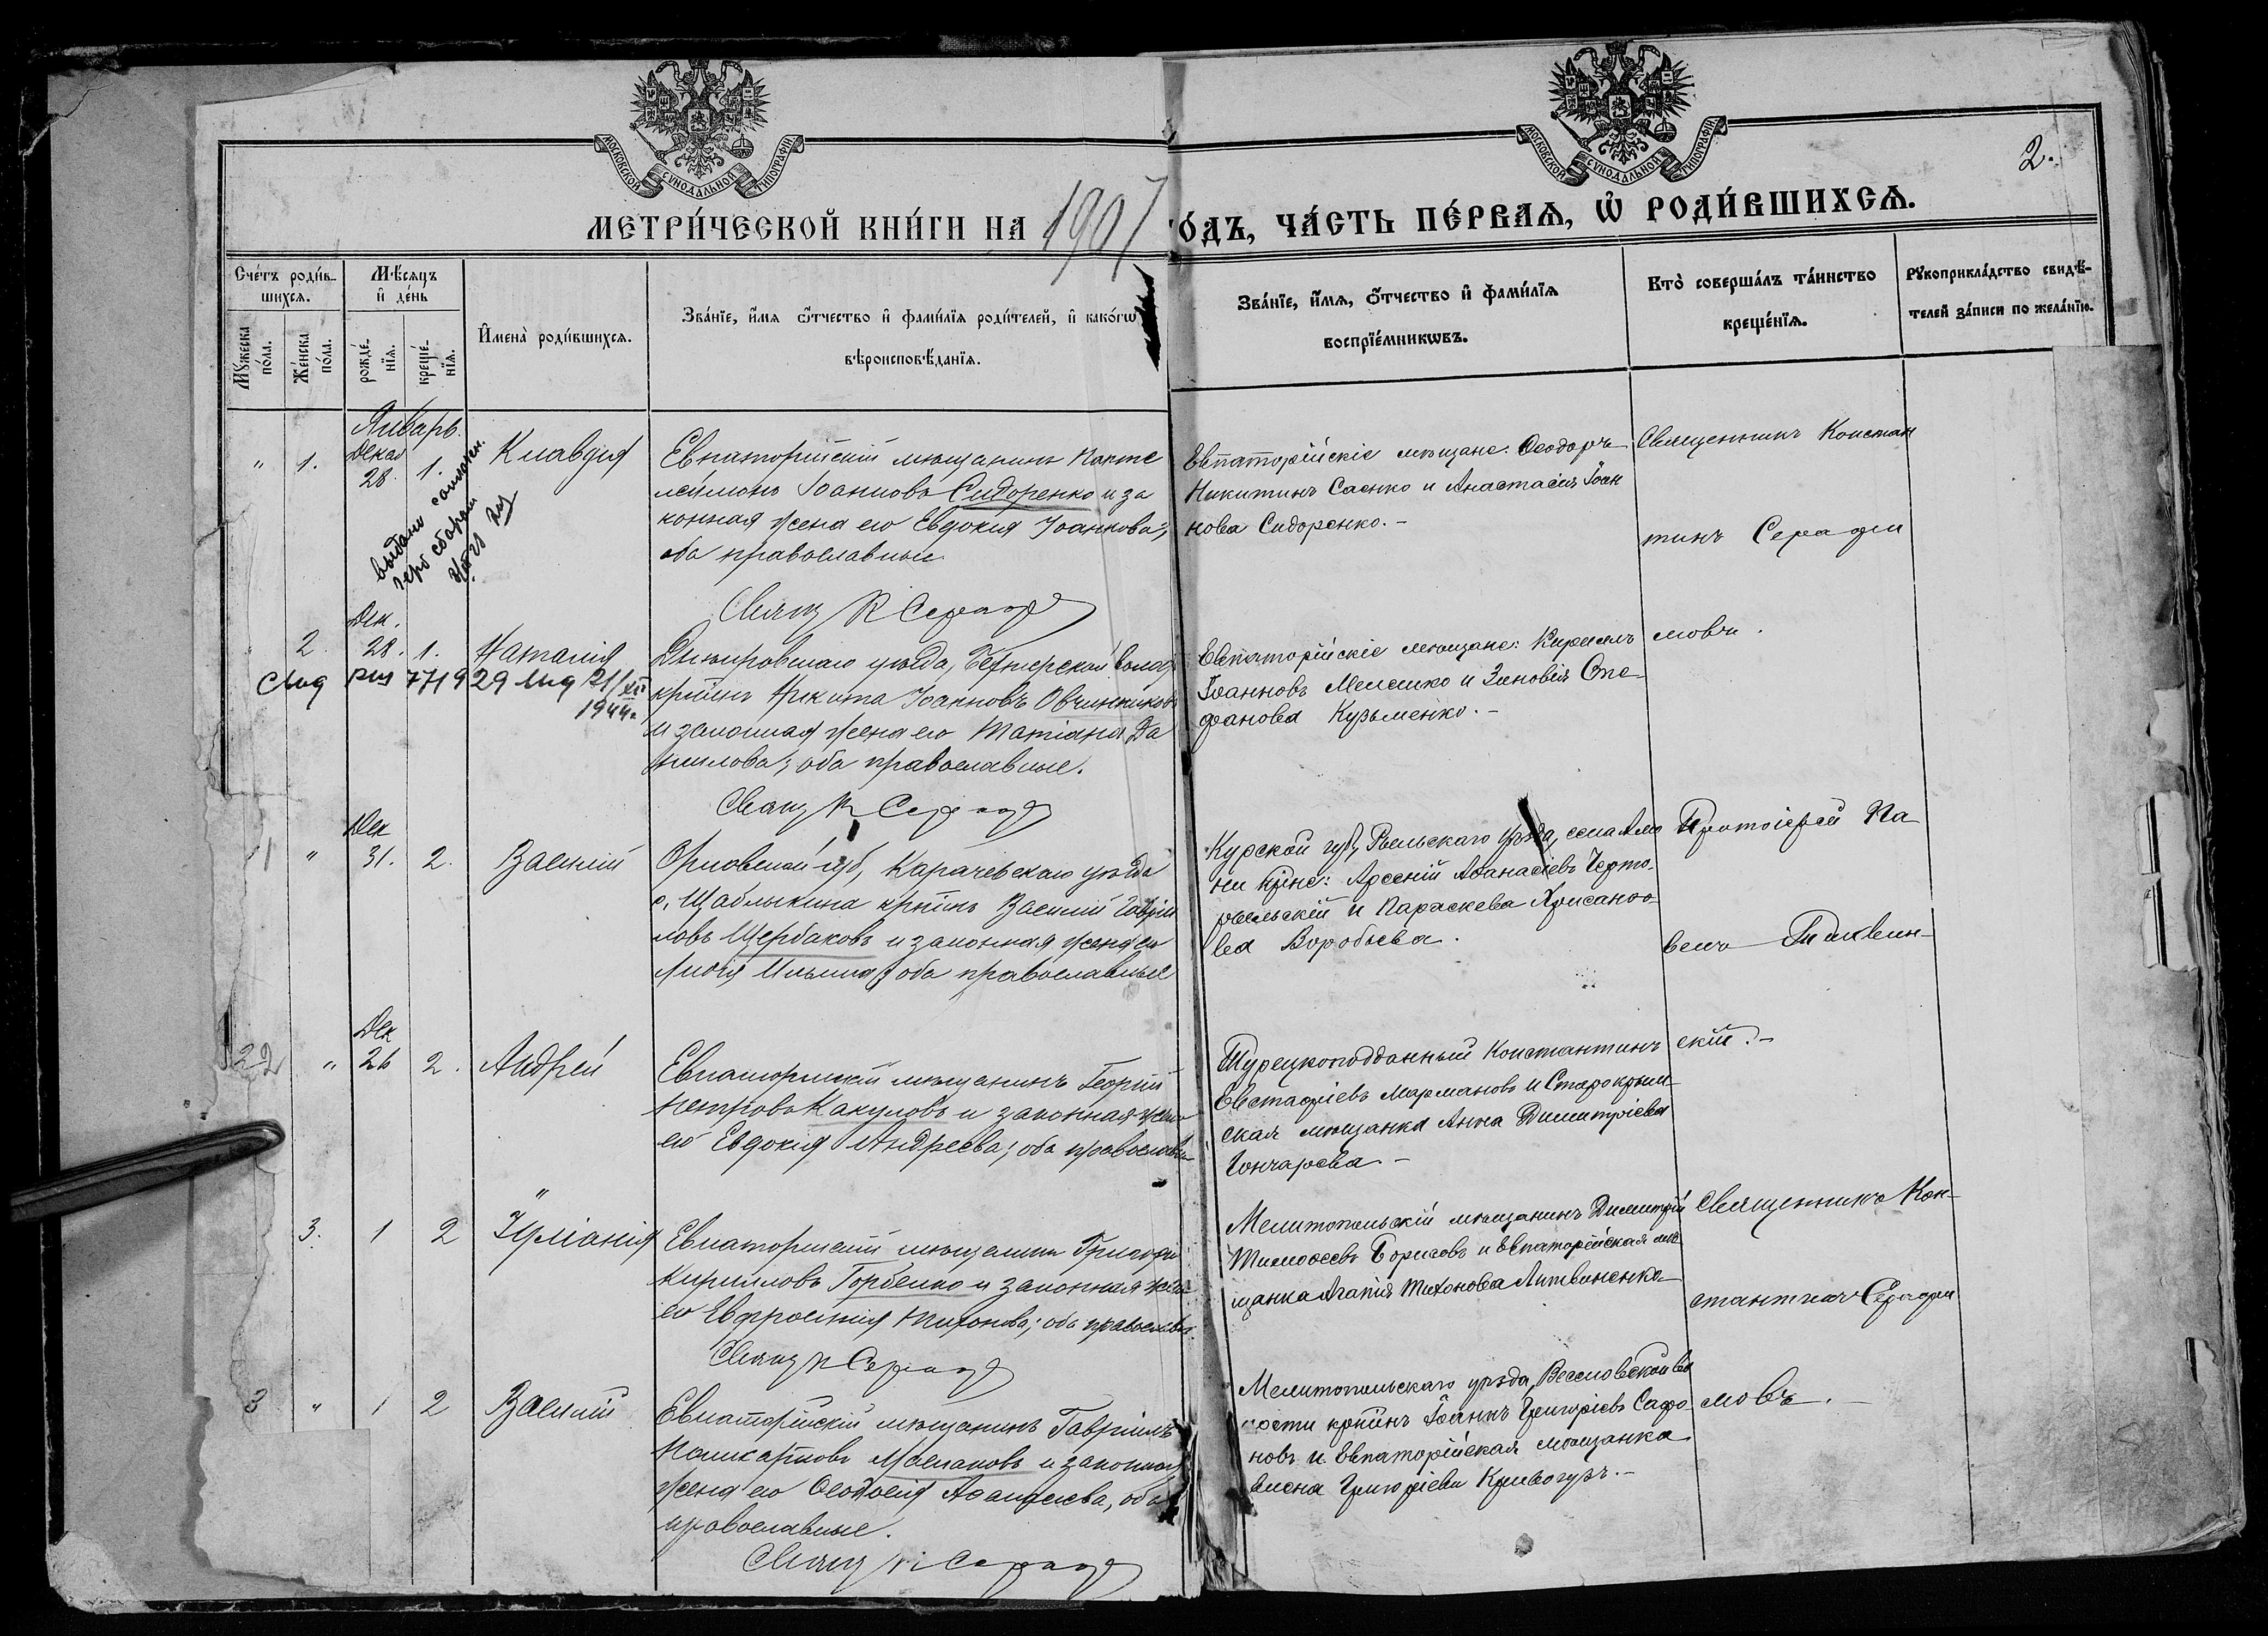 МОСКОВСКОЙ СѴНОДАЛЬНОЙ ТИПОГРАФІИ
МОСКОВСКОЙ СѴНОДАЛЬНОЙ ТИПОГРАФІИ
2.
МЕТРИ́ЧЕСКОЙ КНИ́ГИ НА 1907 ГО́ДЪ, ЧА́СТЬ ПЕ́РВАѦ, Ѡ҆ РОДИ́ВШИХСѦ.
Сче́тъ роди́в-
шихсѧ.
Мꙋ́жеска
по́ла.
Же́нска
по́ла.
Мѣ́сѧцъ
и҆ де́нь
рожде́-
нїѧ.
креще́-
нїѧ.
И҆мена̀ роди́вшихсѧ.
Зва́нїе, и҆́мѧ ѻ҆́тчество и҆ фами́лїѧ роди́телей, и҆ како́гѡ
вѣроисповѣ́данїѧ.
Зва́нїе, и҆́мѧ, ѻ҆́тчество и҆ фами́лїѧ
воспрїе́мникѡвъ.
Кто̀ соверша́лъ та́инство
креще́нїѧ.
Рꙋкоприкла́дство свидѣ́-
телей за́писи по жела́нїю.
Январь.
" 1. Декаб 28. 1. Клавдія
Евпаторійскій мѣщанинъ Панте
леимонъ Іоанновъ Сидоренко и за
конная жена его Евдокія Іоаннова;
оба православные
Свящ К Серафи
Евпаторійскіе мѣщане: Ѳеодоръ
Никитинъ Саенко и Анастасія Іоан
нова Сидоренко.-
Священникъ Констан
тинъ Серафи
мовъ.
выдано
герб сбором
2. Дек. 28. 1. Наталія
7719 29 21/XII
1944г.
Днѣпровскаго уѣзда, волос
крѣстнъ Никита Іоанновъ Овчинниковъ
и законная жена его Татіана Да
ниилова; оба православные.
Свящ К Серафи
Евпаторійскіе мѣщане: Кириллъ
Іоанновъ Мелешко и Зиновія Сте-
фанова Кузьменко.-
1 " Дек 31. 2. Василій
Орловской губ, Карачевскаго уѣзда
с. Щаблыкина крѣстнъ Василій Гавріи
ловъ Щербаковъ и законная жена его
Ильина; оба православные
Курской губ, Рыльскаго уѣзда, села
крне: Арсеній Аѳанасіевъ
и Параскева Хрисанѳо
ва Воробьева.
Протоіерей Па
велъ Тихвин-
скій.-
2 " Дек 26 2. Андрей
Евпаторійскій мѣщанинъ Георгій
Петровъ Какуловъ и законная жена
его Евдокія Андреева; оба православн
Турецкоподданный Константинъ
Евстафіевъ Мармановъ и Старокрым-
ская мѣщанка Анна Димитріева
Гончарова.-
" 3. 1 2 Іуліанія
Евпаторійскій мѣщанинъ Григорій
Кирилловъ Горбенко и законная жена
его Евфросинія Тихонова; оба православн
Свящ К Серафи
Мелитопольскій мѣщанинъ Димитрій
Тимоѳеевъ Борисовъ и Евпаторійская мѣ
щанка Агапія Тихонова Литвиненко
Священникъ Кон-
стантинъ Серафи
мовъ.
3 " 1 2 Василій
Евпаторійскій мѣщанинъ Гавріилъ
Поликарповъ и законная
жена его Ѳеодосія Аѳанасіева, оба
православные.
Свящ К Серафи
Мелитопольскаго уѣзда, Веселовской во
лости крѣстнъ Іоаннъ Григорьевъ Сафо
новъ и Евпаторійская мѣщанка
Елена Григоріева Кривогузъ.-